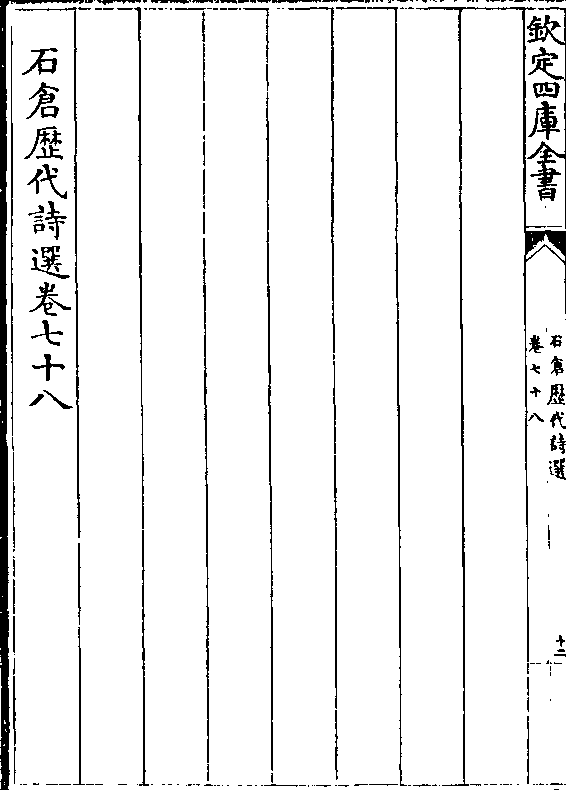 欽定四庫全書
石倉歴代詩選
卷七十八
十二
石倉歴代詩選卷七十八